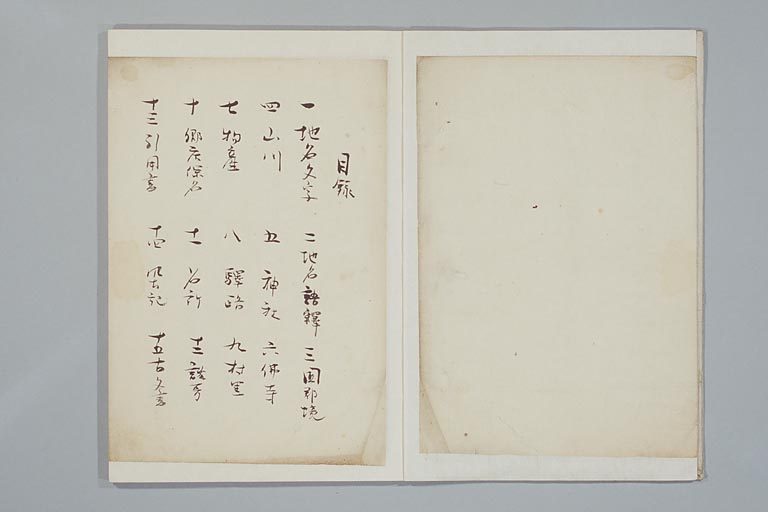 目録
一 地名文字 二 地名語釋 三 國郡境
四 山川 五 神社 六 佛寺
七 物産 八 驛路 九 村里
十 郷庄保名 十一 名所 十二
十三 引用書 十四 風土記 十五 古文書